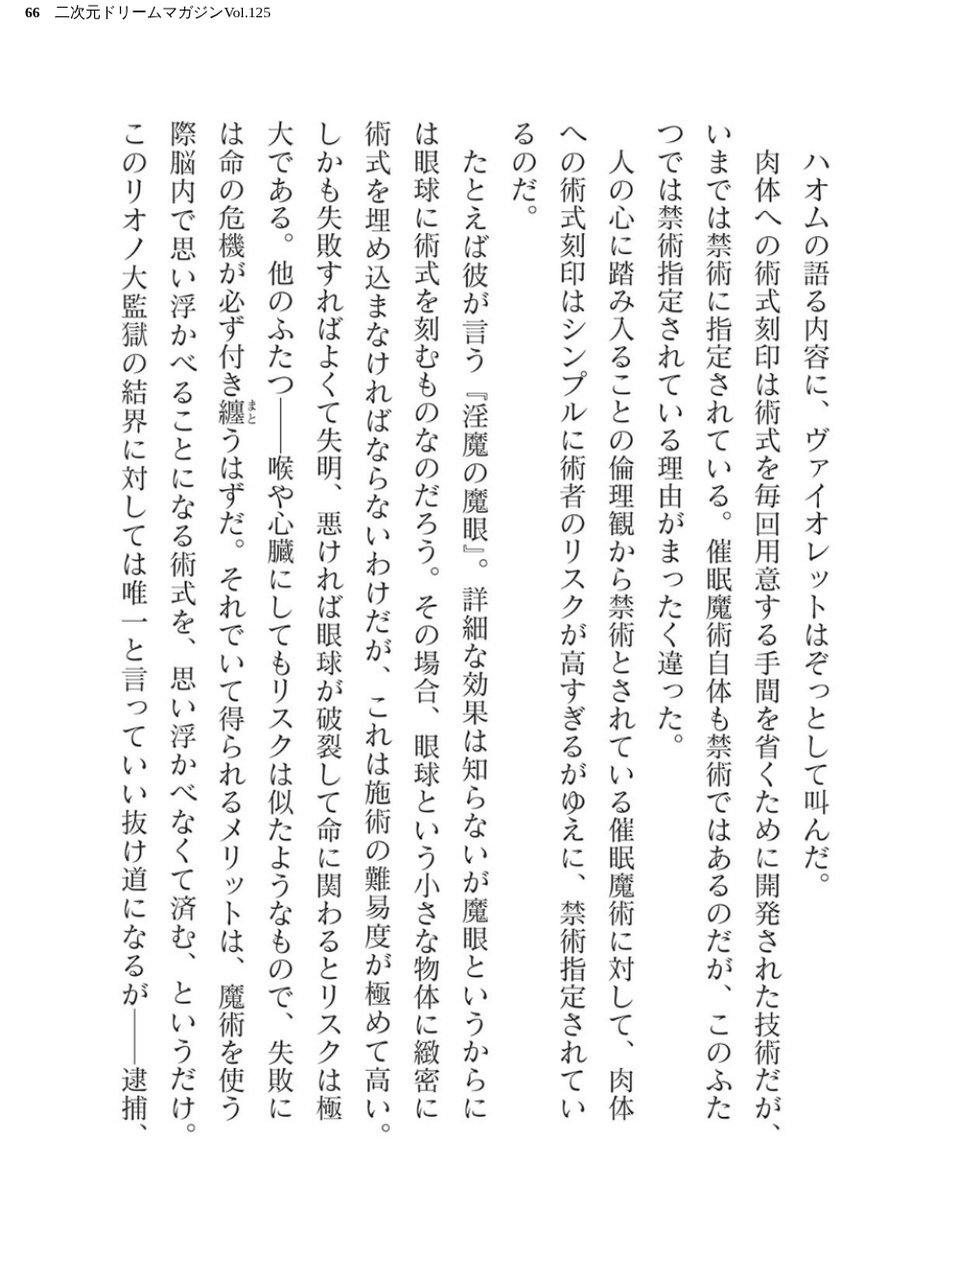 66 二次元ドリームマガジンVol.125
ハオムの語る内容に、ヴァイオレットはぞっとして叫んだ。
肉体への術式刻印は術式を毎回用意する手間を省くために開発された技術だが、
いまでは禁術に指定されている。催眠魔術自体も禁術ではあるのだが、このふた
つでは禁術指定されている理由がまったく違った。
人の心に踏み入ることの倫理観から禁術とされている催眠魔術に対して、肉体
への術式刻印はシンプルに術者のリスクが高すぎるがゆえに、禁術指定されてい
るのだ。
たとえば彼が言う『淫魔の魔眼』。詳細な効果は知らないが魔眼というからに
は眼球に術式を刻むものなのだろう。その場合、眼球という小さな物体に緻密に
術式を埋め込まなければならないわけだが、これは施術の難易度が極めて高い。
しかも失敗すればよくて失明、悪ければ眼球が破裂して命に関わるとリスクは極
大である。他のふたつ――喉や心臓にしてもリスクは似たようなもので、失敗に
は命の危機が必ず付き纏うはずだ。それでいて得られるメリットは、魔術を使う
際脳内で思い浮かべることになる術式を、思い浮かべなくて済む、というだけ。
このリオノ大監獄の結界に対しては唯一と言っていい抜け道になるが――逮捕、